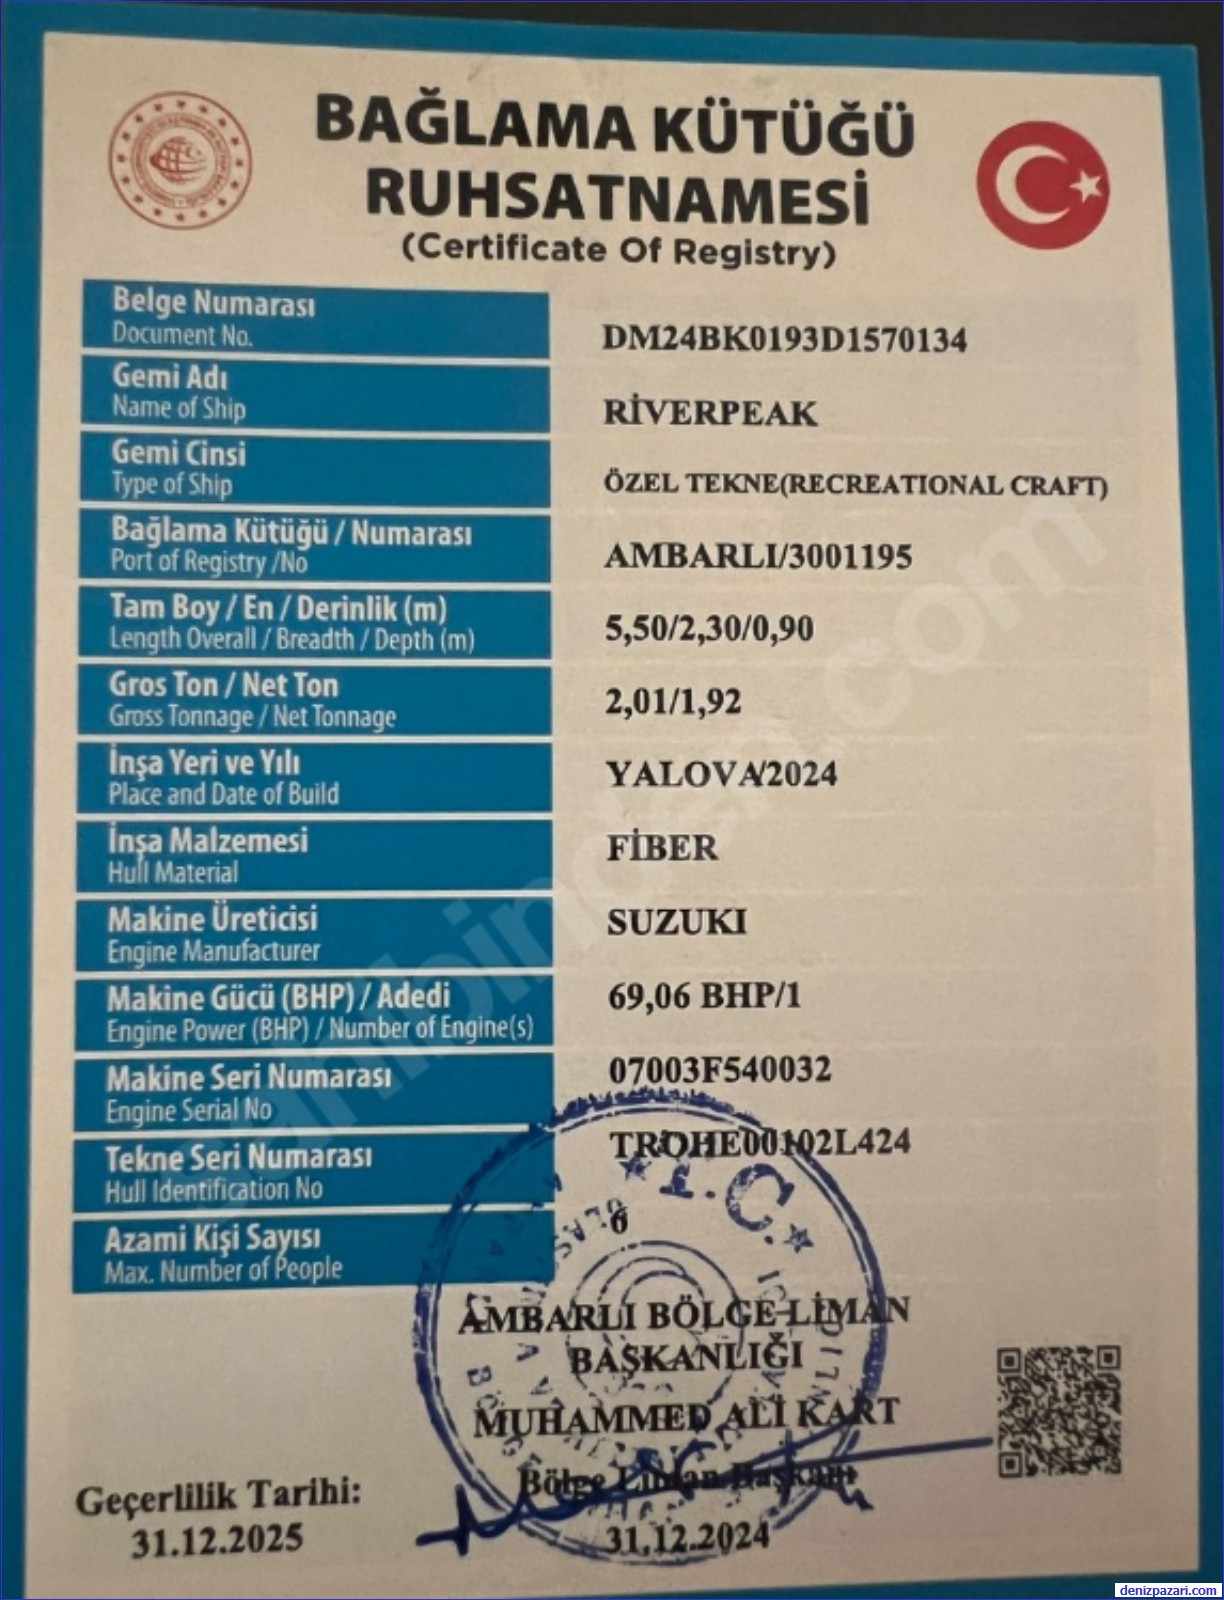 BAĞLAMA KÜTÜĞÜ
RUHSATNAMESİ
(Certificate Of Registry)
Belge Numarası
Document No.
DM24BK0193D1570134
Gemi Adı
Name of Ship
RİVERPEAK
Gemi Cinsi
Type of Ship
ÖZEL TEKNE(RECREATIONAL CRAFT)
Bağlama Kütüğü / Numarası
Port of Registry /No
AMBARLI/3001195
Tam Boy / En / Derinlik (m)
Length Overall / Breadth / Depth (m)
5,50/2,30/0,90
Gros Ton / Net Ton
Gross Tonnage / Net Tonnage
2,01/1,92
İnşa Yeri ve Yılı
Place and Date of Build
YALOVA/2024
İnşa Malzemesi
Hull Material
FİBER
Makine Üreticisi
Engine Manufacturer
SUZUKI
Makine Gücü (BHP) / Adedi
Engine Power (BHP) / Number of Engine(s)
69,06 BHP/1
Makine Seri Numarası
Engine Serial No
07003F540032
Tekne Seri Numarası
Hull Identification No
TROHE00102L424
Azami Kişi Sayısı
Max. Number of People
6
T.C.
AMBARLI BÖLGE LİMAN
BAŞKANLIĞI
MUHAMMED ALİ KART
Bölge Liman Başkanı
31.12.2024
Geçerlilik Tarihi:
31.12.2025
sahibinden.com
denizpazari.com